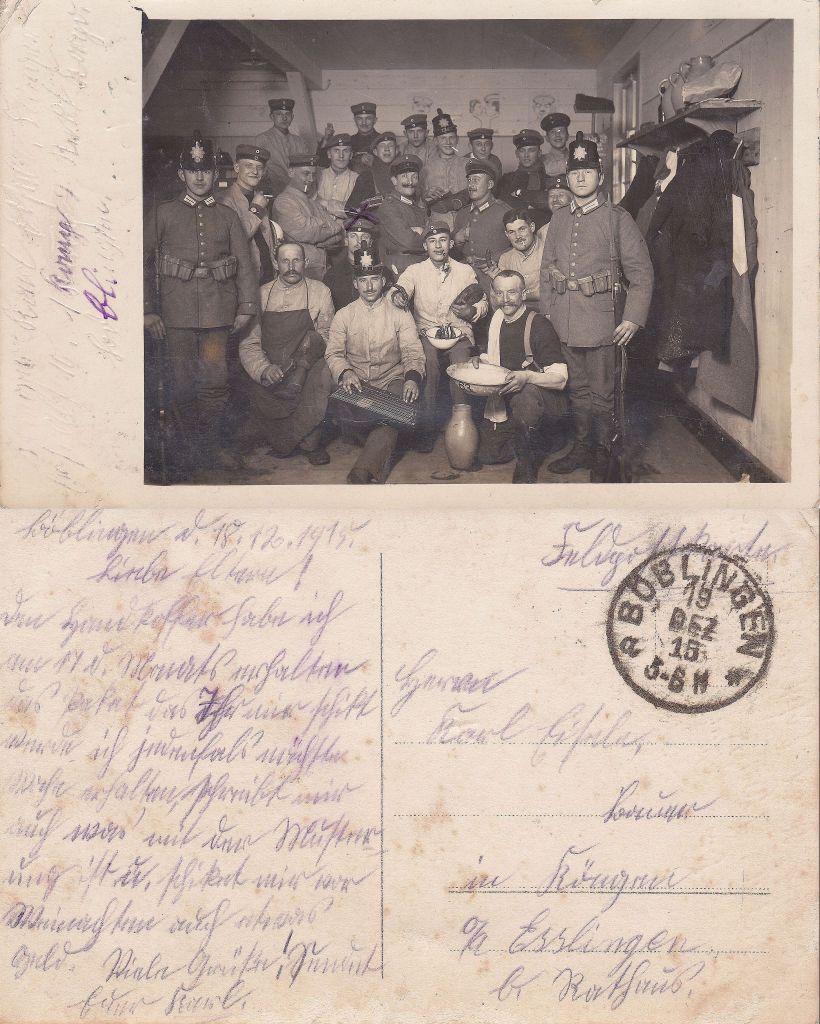 Böblingen d. 18.12.1915.
Liebe Eltern!
Den Handkoffer habe ich
am 17. d. Monats erhalten
das Paket das Ihr mir schikt
werde ich jedenfals nächste
Woche erhalten, schreibt mir
auch was mit der Muster-
ung ist u. schiket mir vor
Weinachten auch etwas
Geld. Viele Grüße! Sendet
Euer Karl.
Feldpostkarte
BÖBLINGEN
19
DEZ
15
5-6 N
Herrn
Karl Eisele,
Bauer
in Köngen
o/a Esslingen
b. Rathaus.